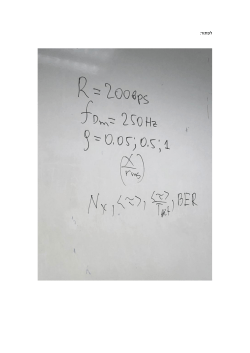 לפתור:
R = 200 bps
f Dm = 250 Hz
ρ = 0.05; 0.5; 1
(X / rms)
N x, <τ>, <τ> / T bit, BER